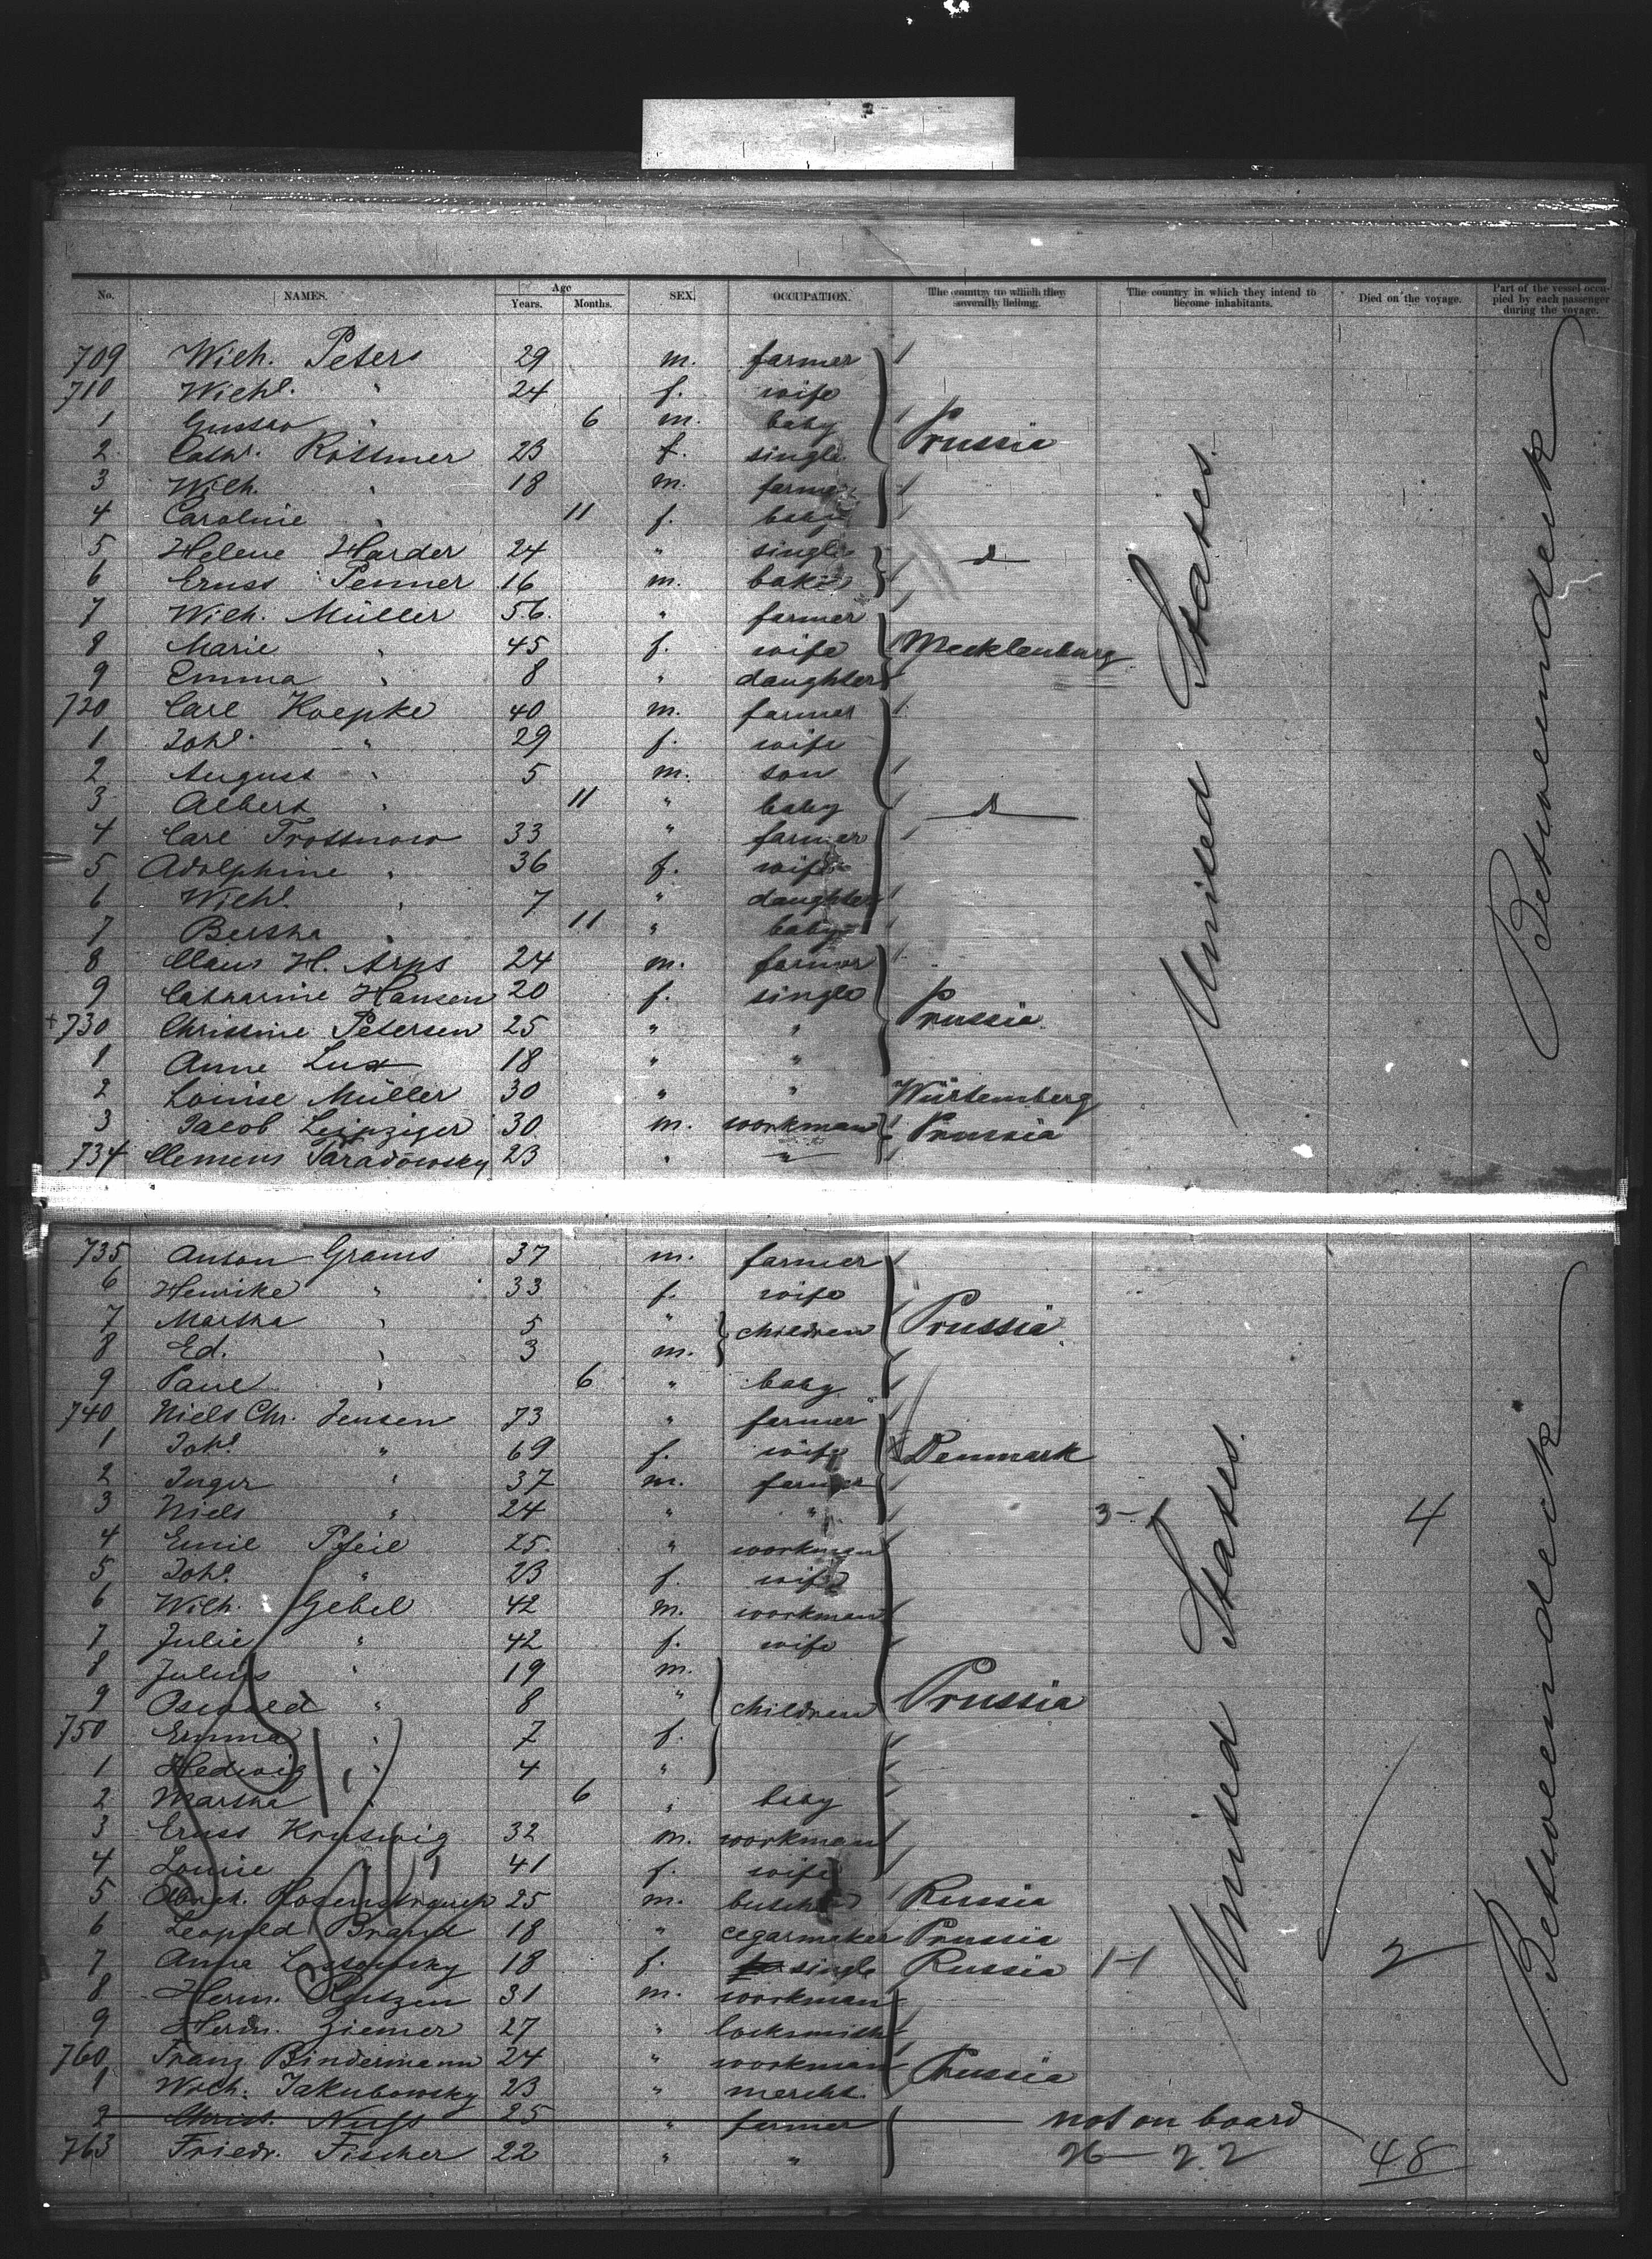 No. NAMES. Age Years. Months. SEX. OCCUPATION. The country to which they severally belong. The country in which they intend to become inhabitants. Died on the voyage. Part of the vessel occupied by each passenger during the voyage.
709 Wilh. Peters 29 m. farmer
710 Wilh! " 24 f. wife
1 Gustav " 6 m. baby Prussia
2 Cath. Rottmer 23 f. single
3 Wilh. " 18 m. farmer
4 Caroline " 11 f. baby
5 Helene Harder 24 " single
6 Ernst Penner 16 m. baker
7 Wilh. Müller 56 " farmer
8 Marie " 45 f. wife Mecklenburg
9 Emma " 8 " daughter
720 Carl Koepke 40 m. farmer
1 Joh! " 29 f. wife
2 August " 5 m. son
3 Albert " 11 " baby
4 Carl Trottnow 33 " farmer
5 Adolphine " 36 f. wife
6 Wilh! " 7 " daughter
7 Bertha " 11 " baby
8 Claus H. Arps 24 m. farmer
9 Catharine Hansen 20 f. single
+730 Christine Petersen 25 " " Prussia
1 Anne Lux 18 " "
2 Louise Müller 30 " " Würtemberg
3 Jacob Leipziger 30 m. workman Prussia
734 Clemens Taradowsky 23 " "
United States.
Betweendeck
735 Anton Grams 37 m. farmer
6 Henrike " 33 f. wife
7 Martha " 5 " children Prussia
8 Ed. " 3 m.
9 Paul " 6 " baby
740 Niels Chr. Jensen 73 " farmer
1 Joh! " 69 f. wife Denmark
2 Inger " 37 m. farmer
3 Niels " 24 " " 3-1 4
4 Emil Pfeil 25 " workman
5 Joh! " 23 f. wife
6 Wilh. Gebel 42 m. workman
7 Julie " 42 f. wife
8 Julius " 19 m.
9 Oswald " 8 " children Prussia
750 Emma " 7 f.
1 Hedwig " 4 "
2 Martha " 6 " baby
3 Ernst Krutwig 32 m. workman
4 Louise " 41 f. wife
5 Rosenstrauch 25 m. butcher Russia
6 Leopold Brand 18 " cegarmeker Prussia
7 Anna 18 f. single Russia 1-1 2
8 Herm. 31 m. workman
9 Herm. Ziemer 27 " locksmith
760 Franz Bindermann 24 " workman Prussia
1 Wilh. Jakubowsky 23 " mercht.
2 Christ. Nuss 25 " farmer not on board
763 Friedr. Fischer 22 " " 26-22 48
United States.
Betweendeck